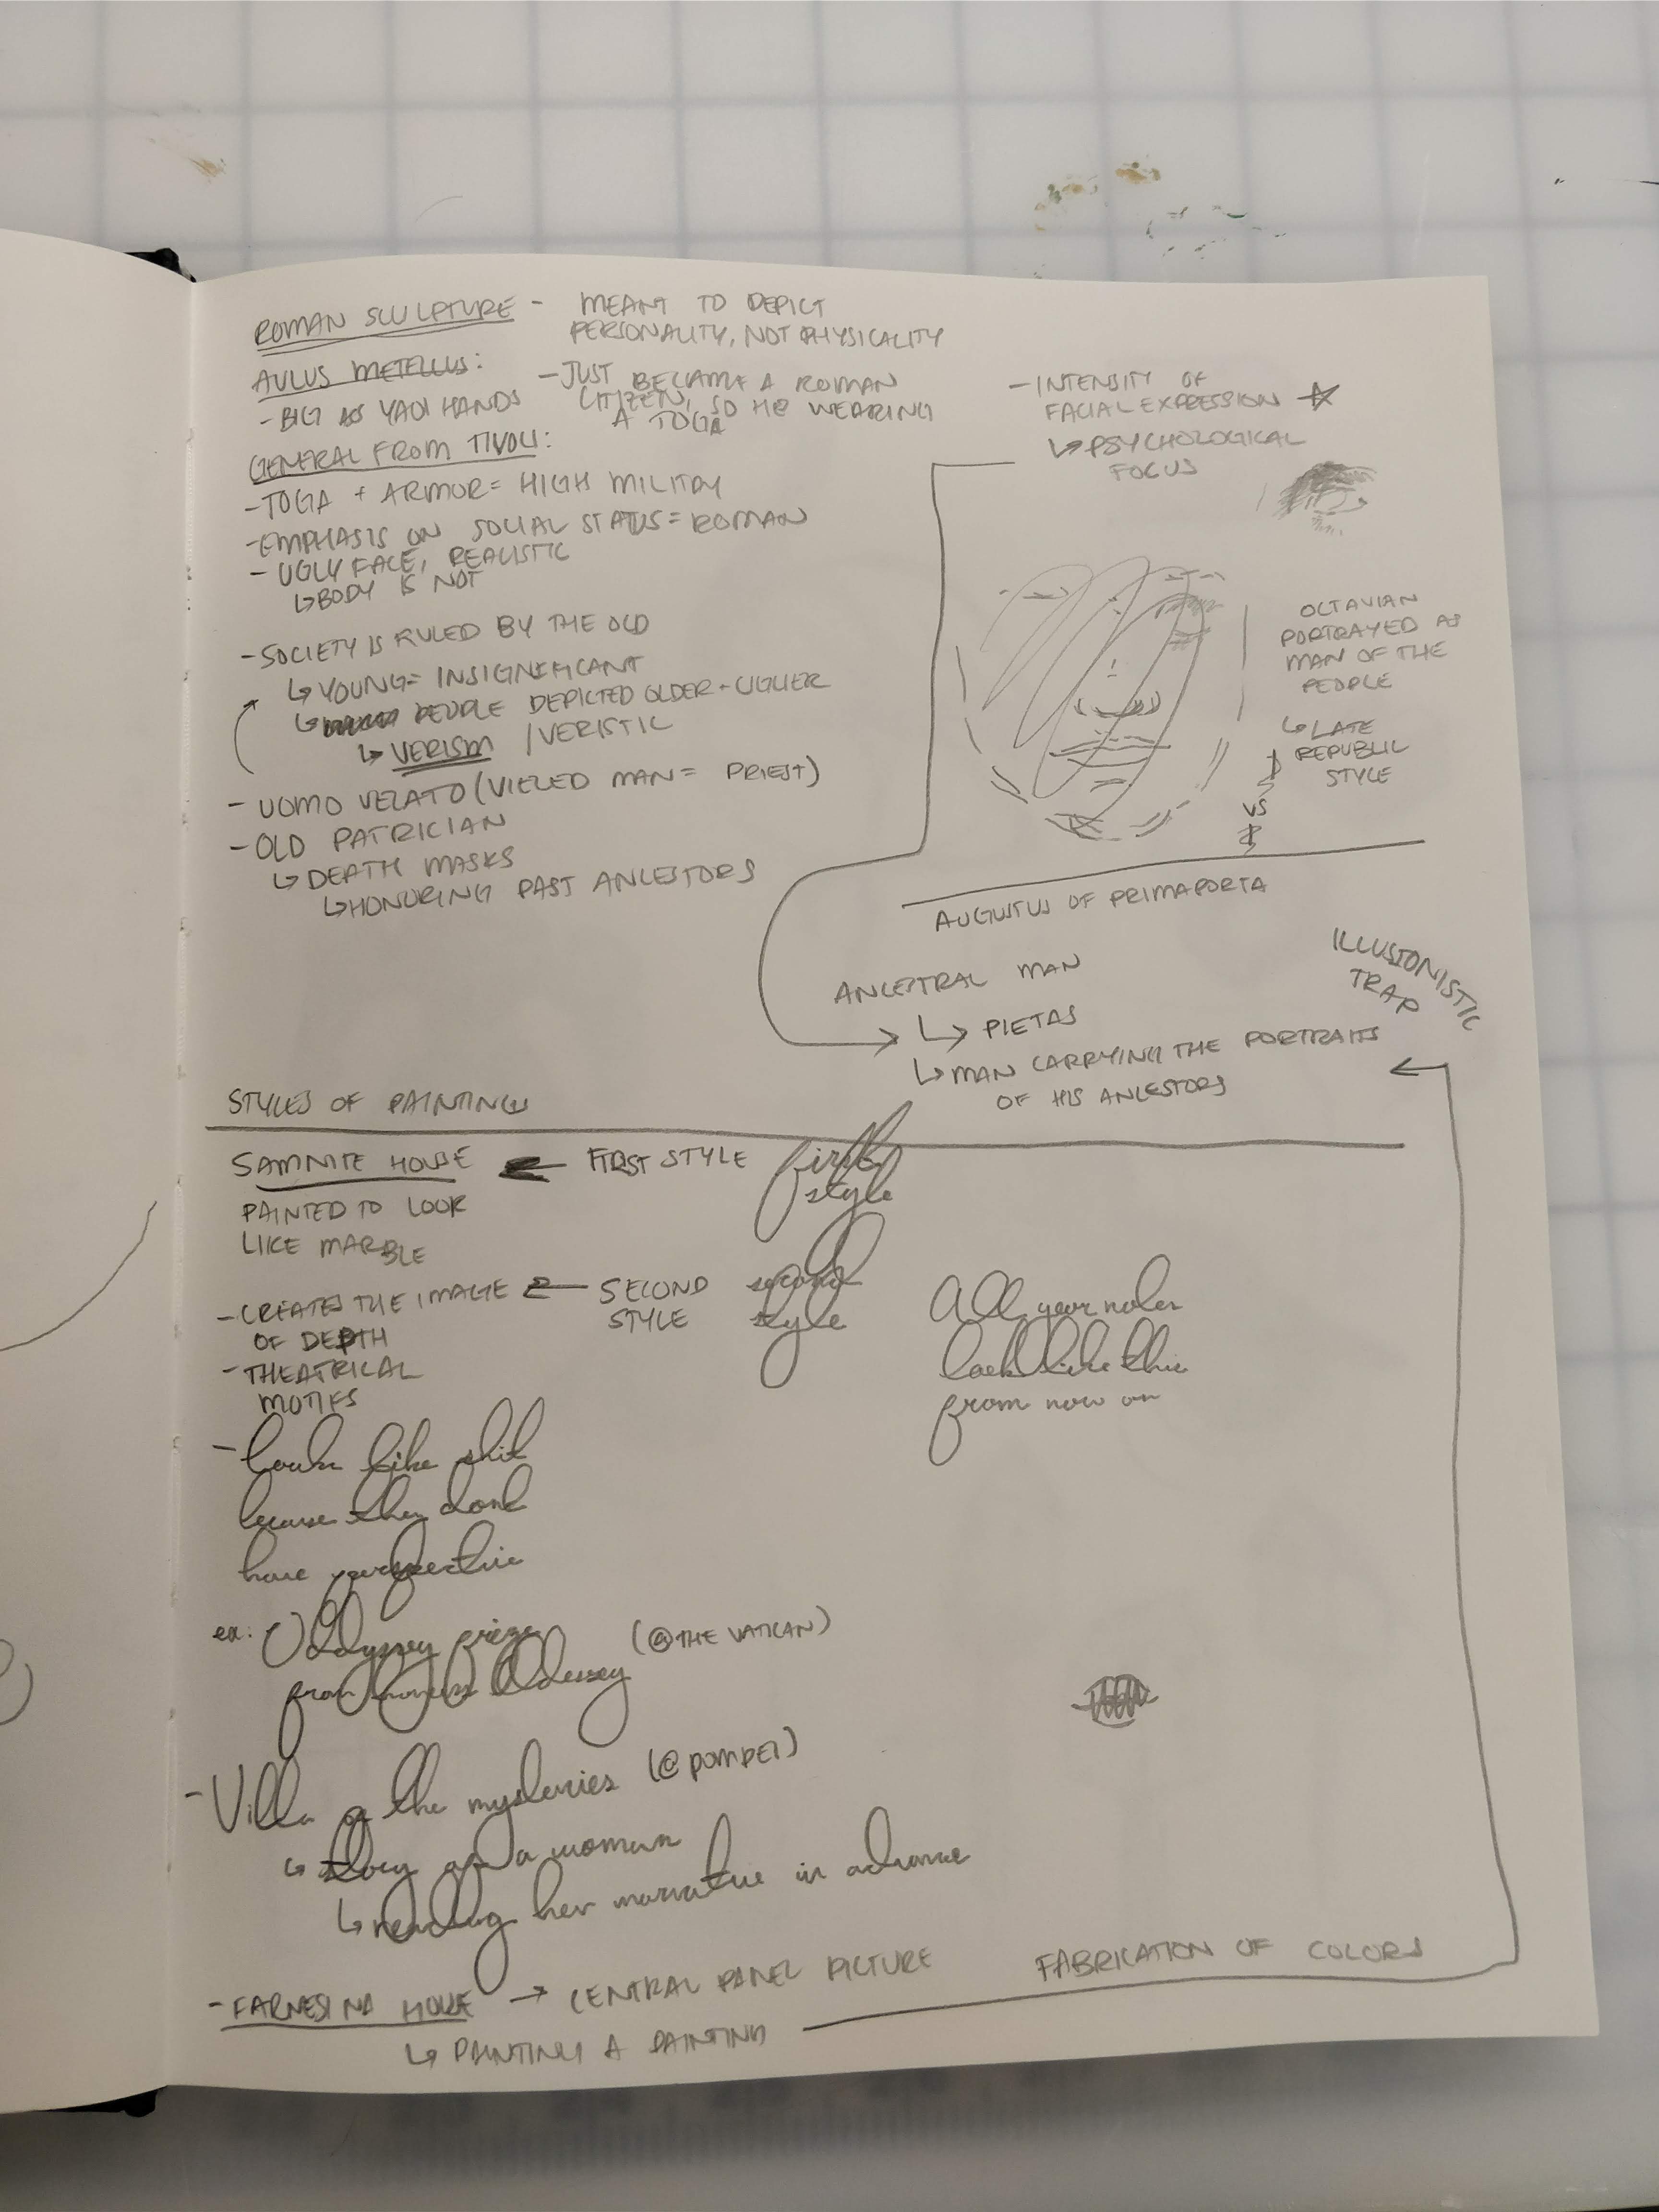 ROMAN SCULPTURE - MEANT TO DEPICT
PERSONALITY, NOT PHYSICALITY
AULUS METELLUS:
- BIG ASS YAOI HANDS
- JUST BECAME A ROMAN
CITIZEN, SO HE WEARING
A TOGA
GENERAL FROM TIVOLI:
- TOGA + ARMOR = HIGH MILITRY
- EMPHASIS ON SOCIAL STATUS = ROMAN
- UGLY FACE, REALISTIC
↳ BODY IS NOT
- SOCIETY IS RULED BY THE OLD
↳ YOUNG = INSIGNIFICANT
↳ PEOPLE DEPICTED OLDER + UGLIER
↳ VERISM / VERISTIC
- UOMO VELATO (VIELED MAN = PRIEST)
- OLD PATRICIAN
↳ DEATH MASKS
↳ HONORING PAST ANCESTORS
- INTENSITY OF
FACIAL EXPRESSION ☆
↳ PSYCHOLOGICAL
FOCUS
OCTAVIAN
PORTRAYED AS
MAN OF THE
PEOPLE
↳ LATE
REPUBLIC
STYLE
VS
AUGUSTUS OF PRIMAPORTA
ANCESTRAL MAN
↳ PIETAS
↳ MAN CARRYING THE PORTRAITS
OF HIS ANCESTORS
ILLUSIONISTIC
TRAP
STYLES OF PAINTINGS
SAMNITE HOUSE ← FIRST STYLE first
style
PAINTED TO LOOK
LIKE MARBLE
- CREATES THE IMAGE ← SECOND second
OF DEPTH STYLE style
- THEATRICAL
MOTIFS
All your notes
look like this
from now on
- looks like shit
because they dont
have perspective
ex: Oddyssey frieze (@THE VATICAN)
from Odessey
- Villa of the mysteries (@POMPEI)
↳ story of a woman
↳ reading her narrative in advance
- FARNESINA HOUSE → CENTRAL PANEL PICTURE
↳ PAINTING A PAINTING
FABRICATION OF COLORS